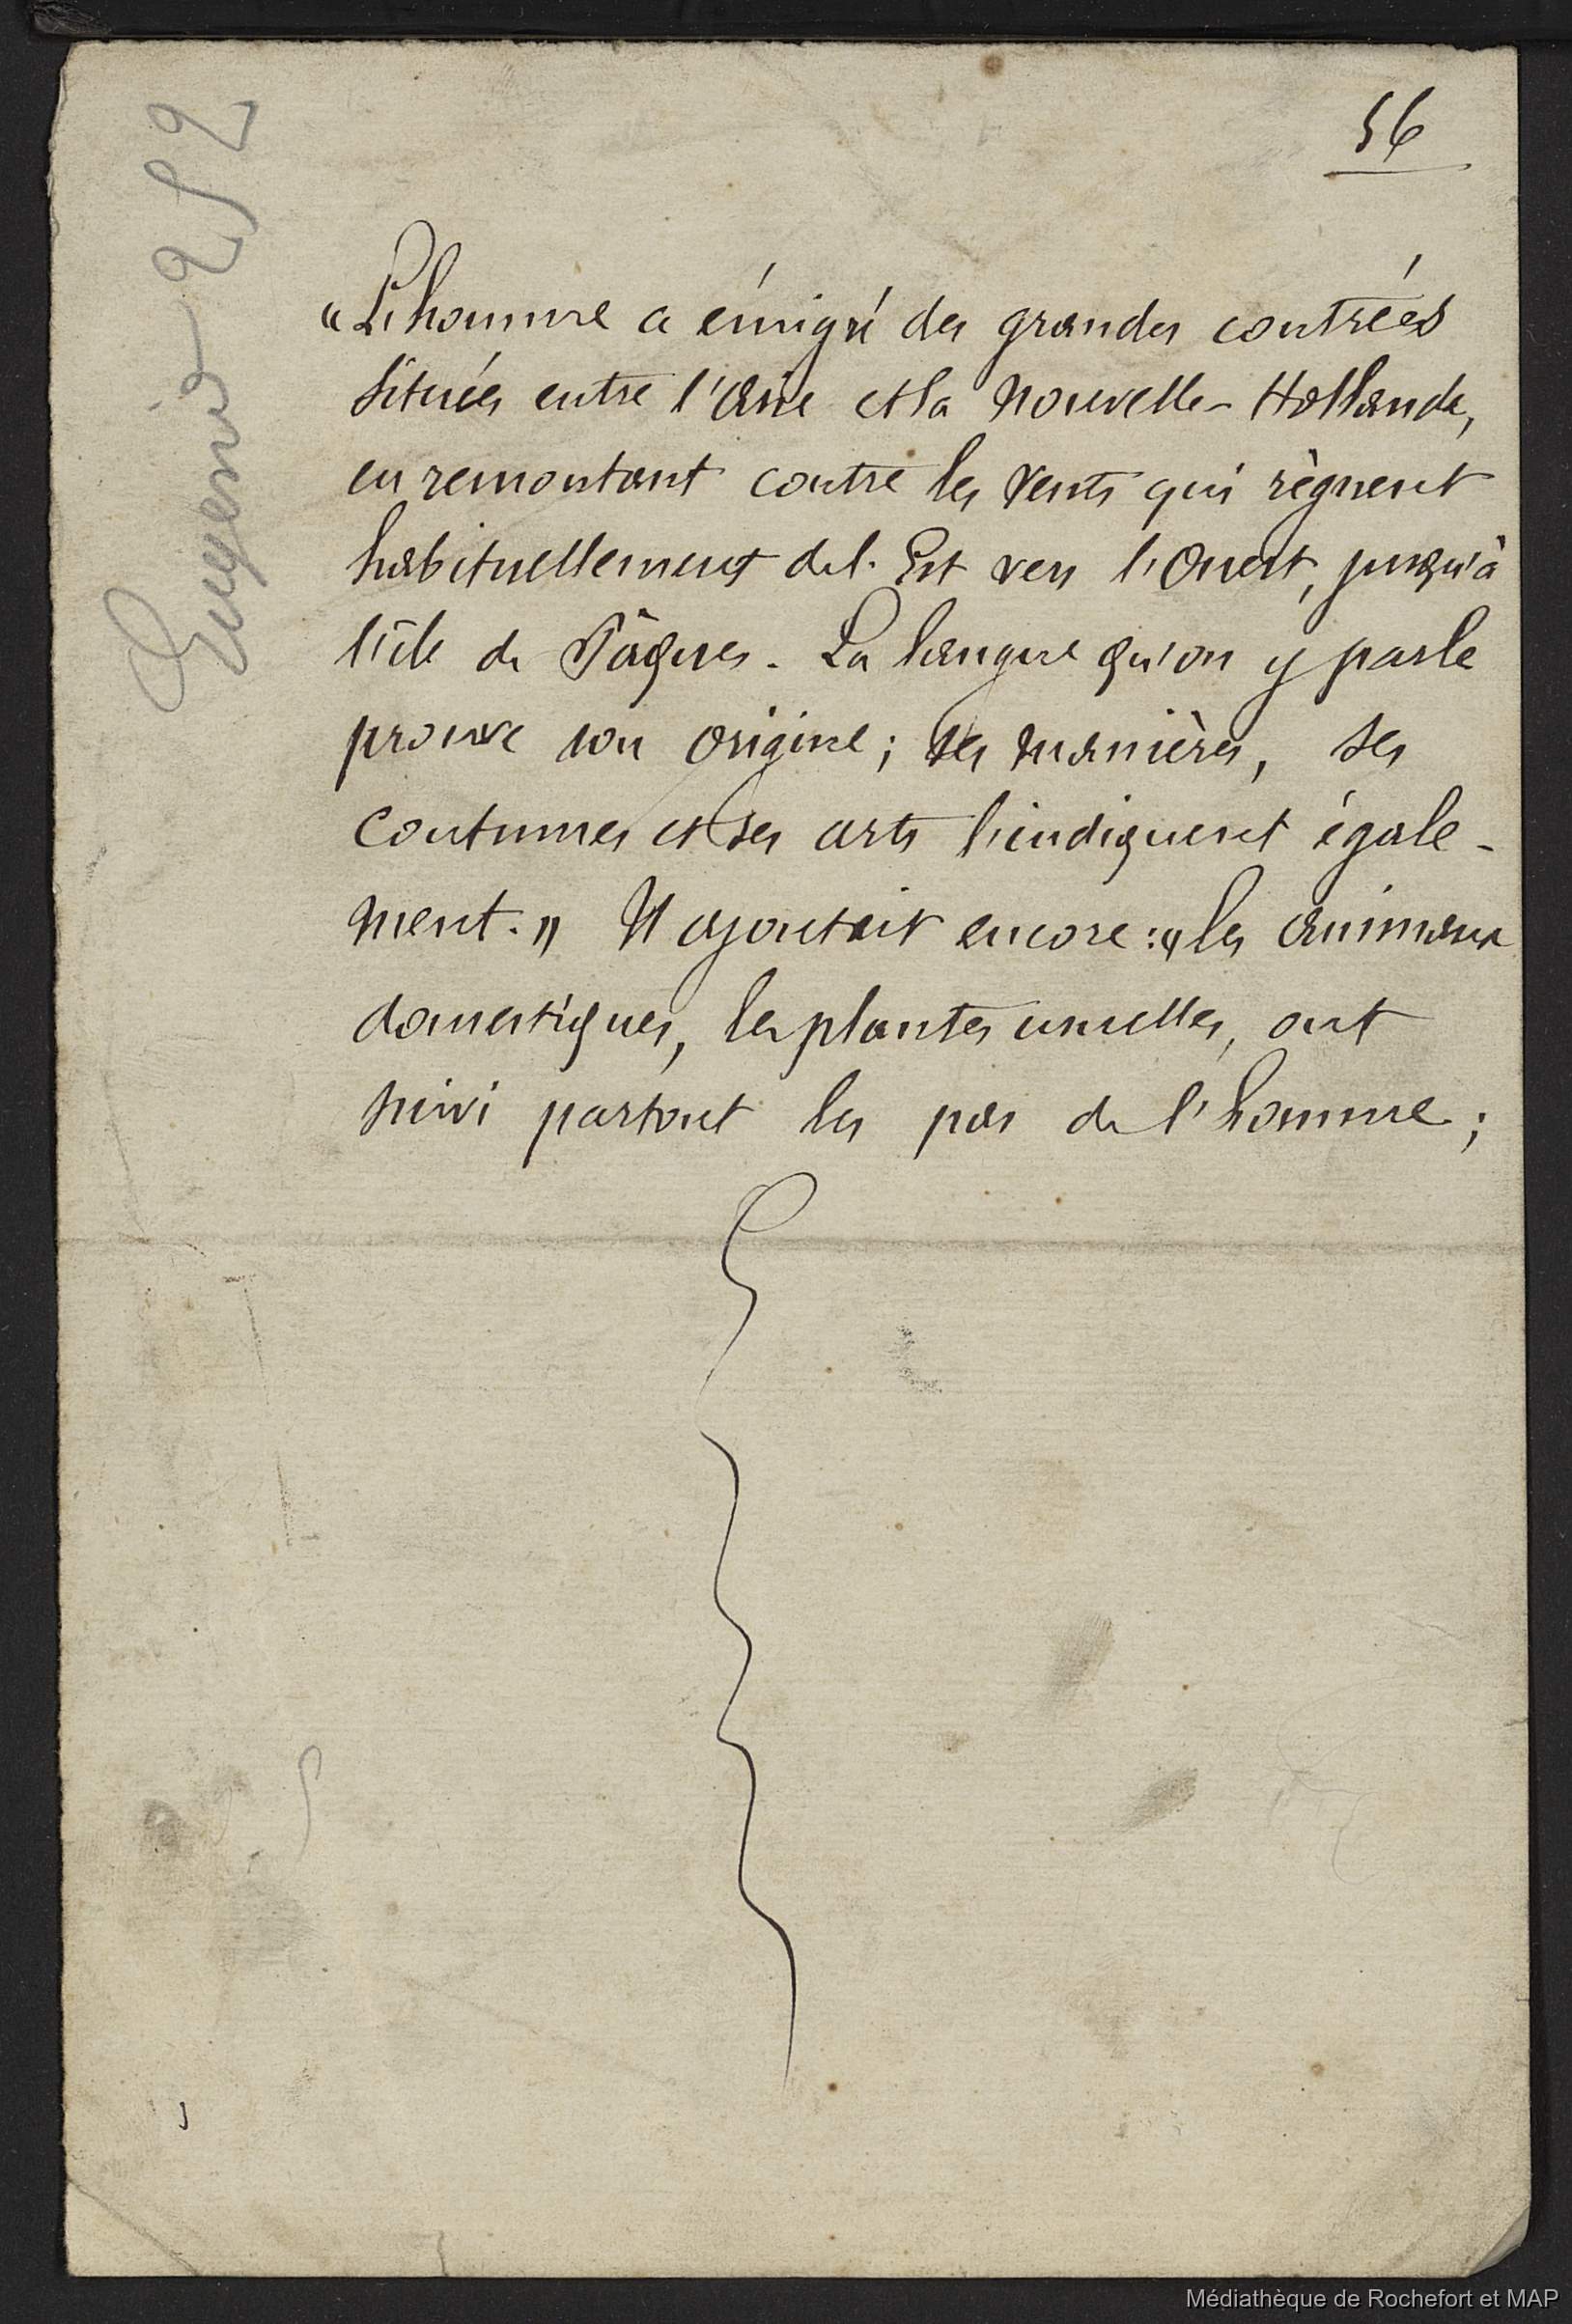 56
Eugenio 252
« L'homme a émigré des grandes contrées
situées entre l'Asie et la Nouvelle-Hollande,
en remontant contre les vents qui règnent
habituellement de l'Est vers l'Ouest, jusqu'à
l'île de Pâques. La langue qu'on y parle
prouve son origine ; ses manières, ses
coutumes et ses arts l'indiquent égale-
ment. » Il ajoutait encore : « les animaux
domestiques, les plantes usuelles, ont
suivi partout les pas de l'homme ;
Médiathèque de Rochefort et MAP